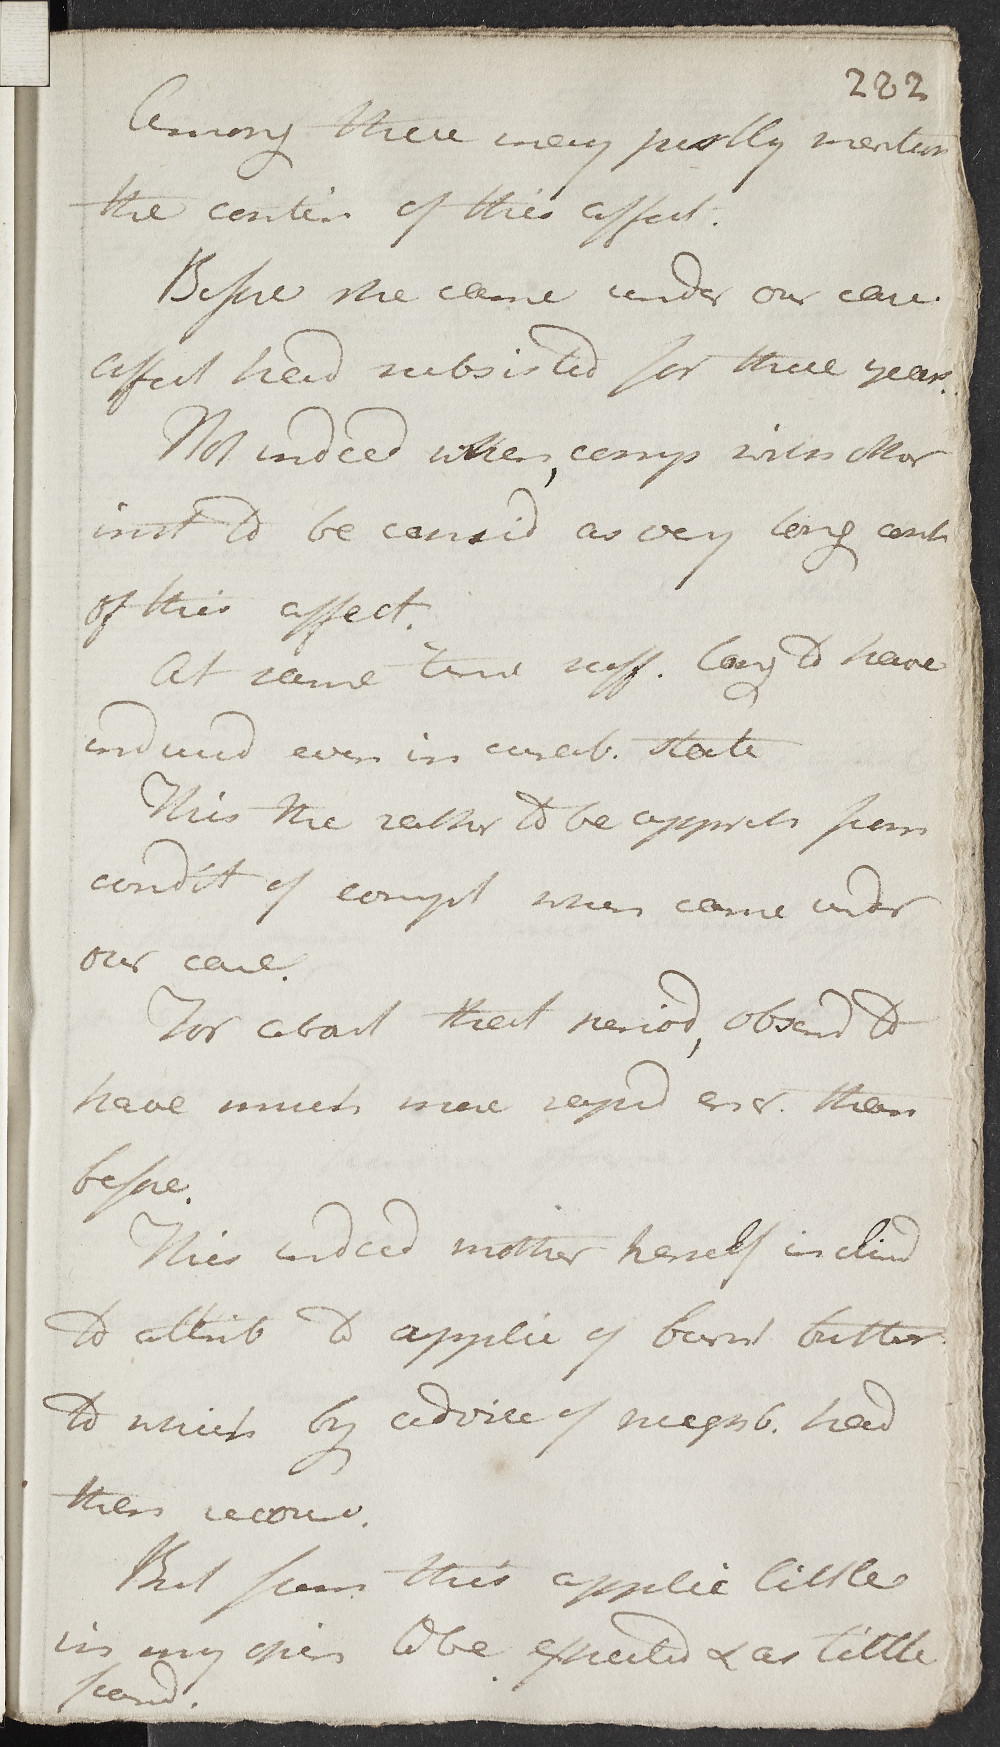 222
Among these may justly mention
the contin of this affect.
Before she came under our care
affect had subsisted for three years.
Not indeed when, comp with other
inst to be consid as very long cont
of this affect.
At same time suff. long to have
induced even in curab. state
This the rather to be appreh from
condit of compl when came under
our care.
For about that period, observd to
have much more rapid incr. than
before.
This indeed mother herself inclind
to attrib to applic of burnt butter
to which by advice of neighb. had
then recours.
But from this applic little
in my opin to be expected & as little
feard.